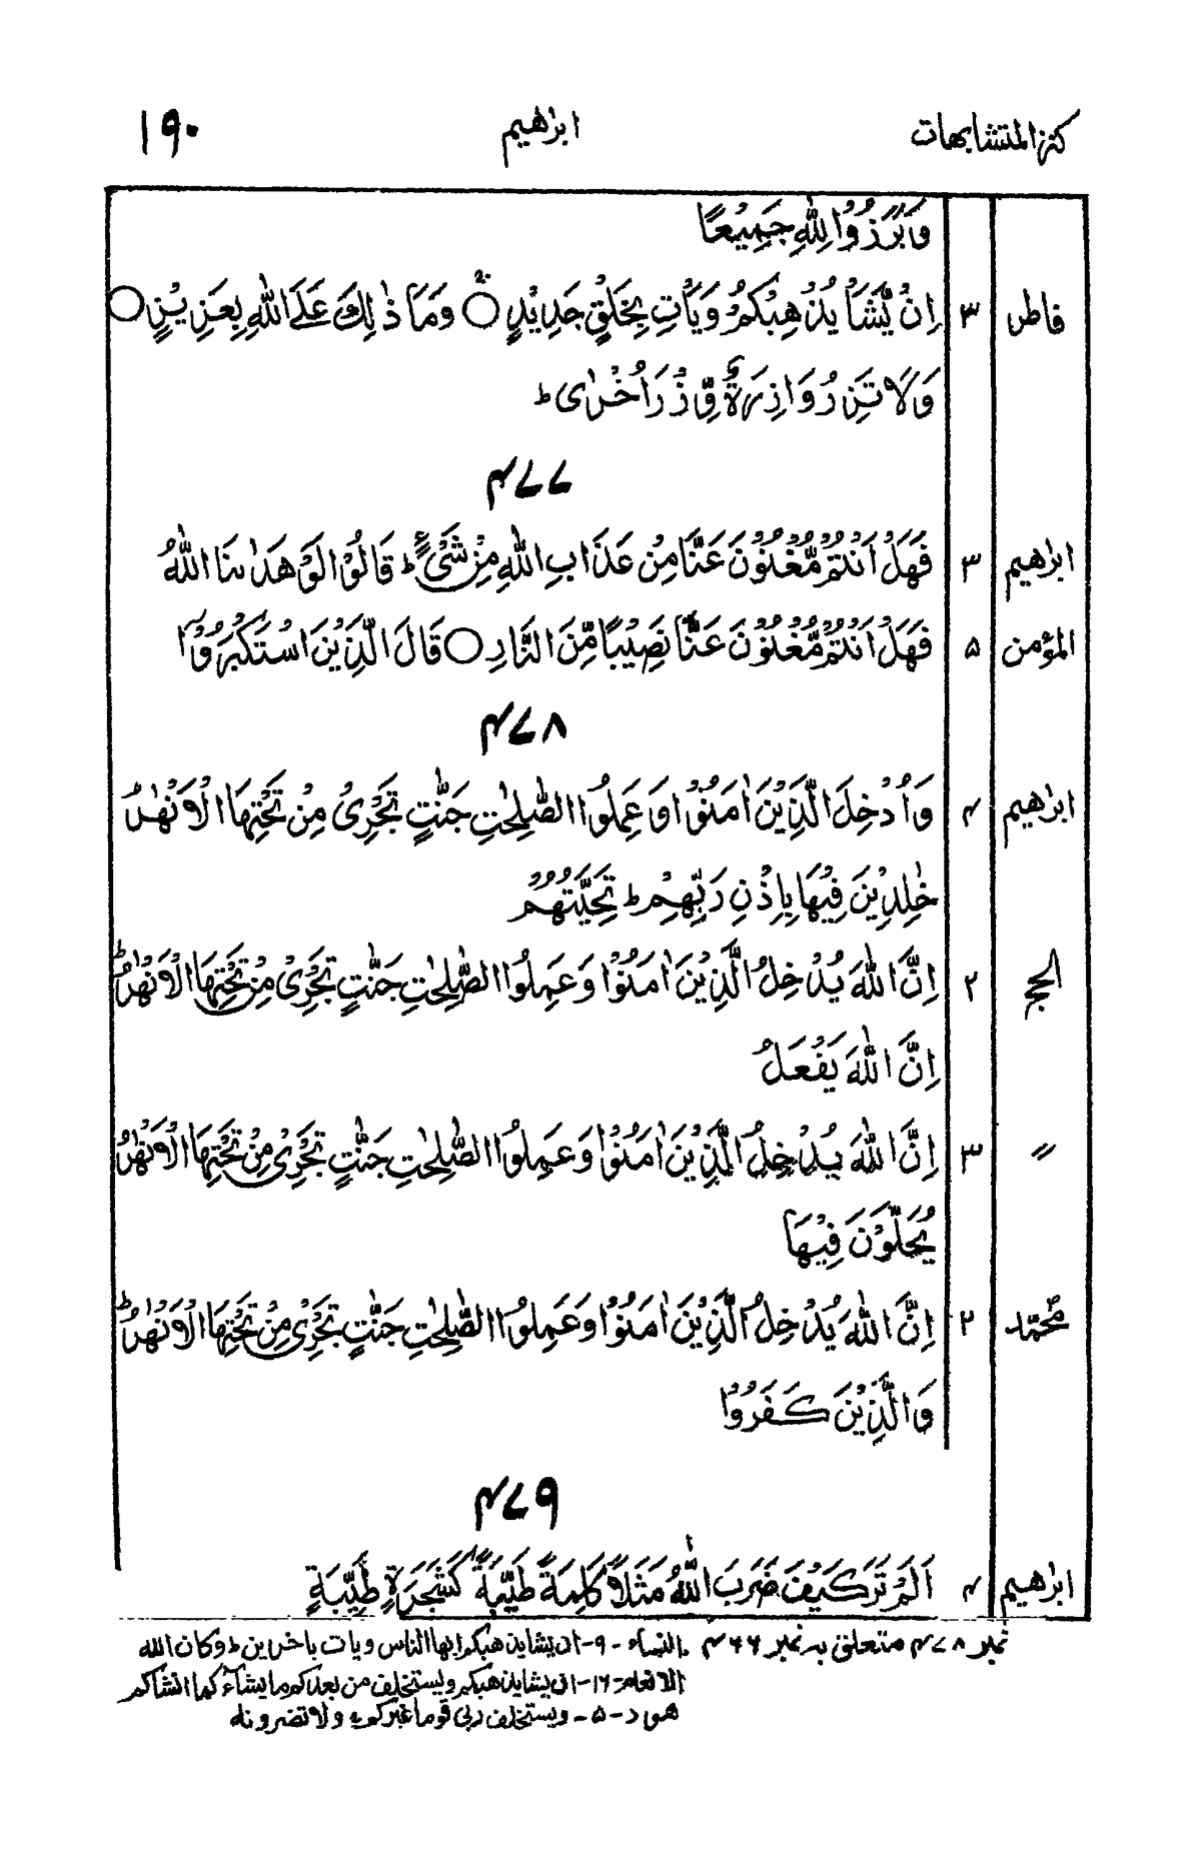 كنز المتشابهات ابراهيم ١٩٠
وَبَرَزُوْا لِلّٰهِ جَمِيْعًا
فاطر ٣ اِنْ يَّشَاْ يُذْهِبْكُمْ وَيَاْتِ بِخَلْقٍ جَدِيْدٍ ۚ○ وَمَا ذٰلِكَ عَلَى اللّٰهِ بِعَزِيْزٍ○
وَلَا تَزِرُ وَازِرَةٌ وِّزْرَ اُخْرٰى ط
۴۷۷
ابراهيم ٣ فَهَلْ اَنْتُمْ مُّغْنُوْنَ عَنَّا مِنْ عَذَابِ اللّٰهِ مِنْ شَيْءٍ ط قَالُوْا لَوْ هَدٰىنَا اللّٰهُ
المؤمن ۵ فَهَلْ اَنْتُمْ مُّغْنُوْنَ عَنَّا نَصِيْبًا مِّنَ النَّارِ○ قَالَ الَّذِيْنَ اسْتَكْبَرُوْٓا
۴۷۸
ابراهيم ۴ وَاُدْخِلَ الَّذِيْنَ اٰمَنُوْا وَعَمِلُوا الصّٰلِحٰتِ جَنّٰتٍ تَجْرِيْ مِنْ تَحْتِهَا الْاَنْهٰرُ
خٰلِدِيْنَ فِيْهَا بِاِذْنِ رَبِّهِمْ ط تَحِيَّتُهُمْ
الحج ٢ اِنَّ اللّٰهَ يُدْخِلُ الَّذِيْنَ اٰمَنُوْا وَعَمِلُوا الصّٰلِحٰتِ جَنّٰتٍ تَجْرِيْ مِنْ تَحْتِهَا الْاَنْهٰرُ ط
اِنَّ اللّٰهَ يَفْعَلُ
〃 ٣ اِنَّ اللّٰهَ يُدْخِلُ الَّذِيْنَ اٰمَنُوْا وَعَمِلُوا الصّٰلِحٰتِ جَنّٰتٍ تَجْرِيْ مِنْ تَحْتِهَا الْاَنْهٰرُ
يُحَلَّوْنَ فِيْهَا
محمّد ٢ اِنَّ اللّٰهَ يُدْخِلُ الَّذِيْنَ اٰمَنُوْا وَعَمِلُوا الصّٰلِحٰتِ جَنّٰتٍ تَجْرِيْ مِنْ تَحْتِهَا الْاَنْهٰرُ ط
وَالَّذِيْنَ كَفَرُوْا
۴۷۹
ابراهيم ۴ اَلَمْ تَرَ كَيْفَ ضَرَبَ اللّٰهُ مَثَلًا كَلِمَةً طَيِّبَةً كَشَجَرَةٍ طَيِّبَةٍ
نمبر ۴۷۸ متعلق به نمبر ۴۶۶ ۔ النساء - ٩ - ان يشا يذهبكم ايها الناس ويات باخرين ط وكان الله
الانعام - ١٦ - ان يشا يذهبكم ويستخلف من بعدكم ما يشاء كما انشاكم
هود - ۵ - ويستخلف ربي قوما غيركم ولا تضرونه